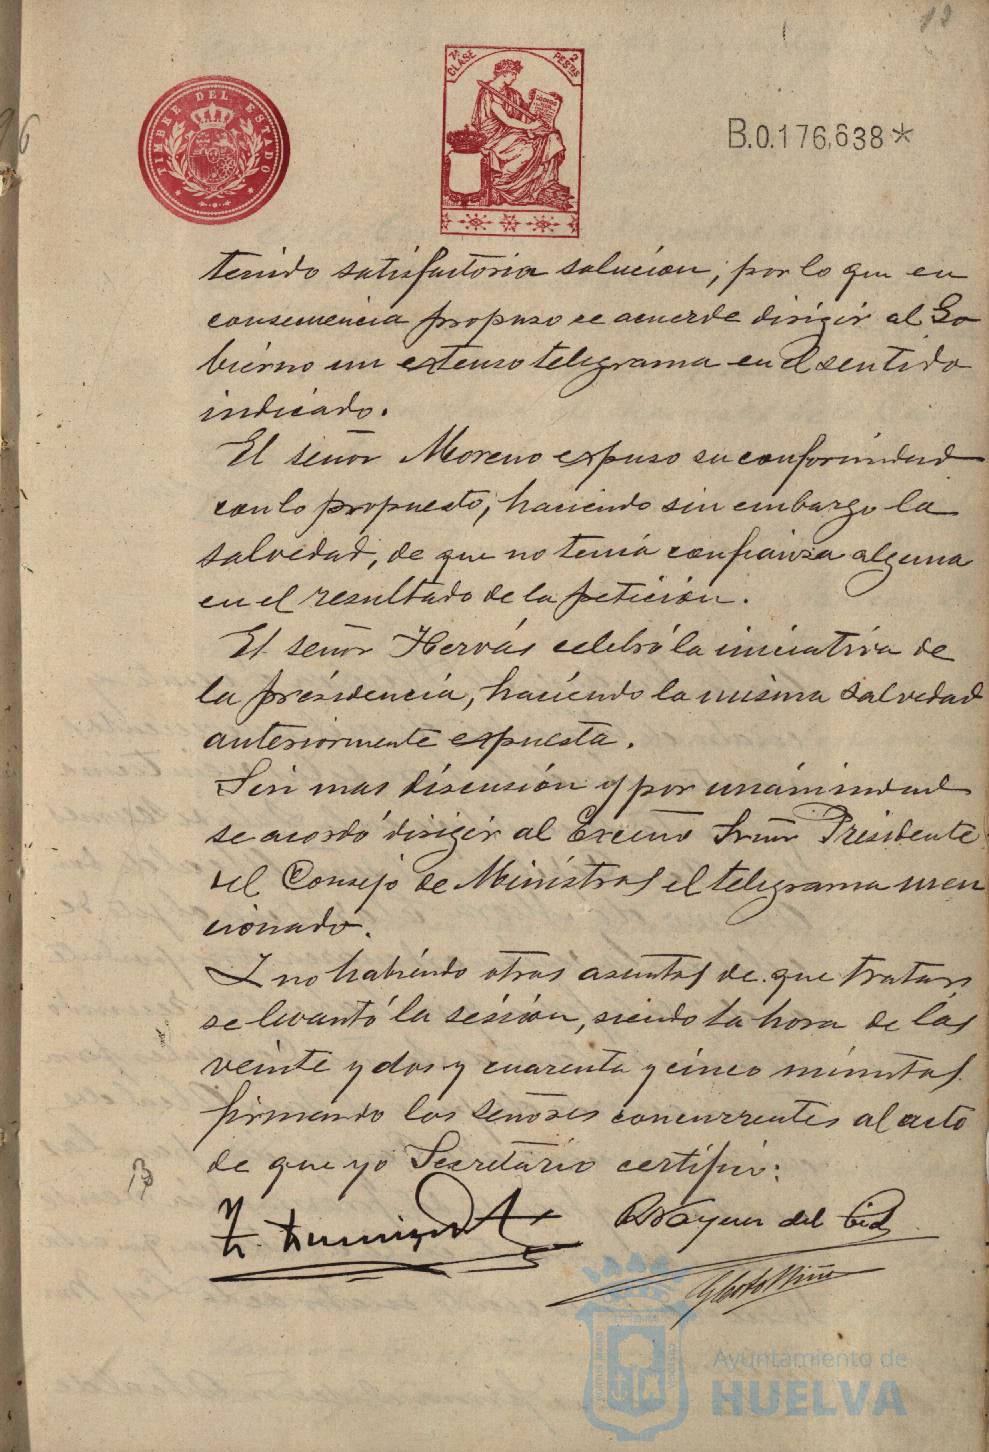 12
TIMBRE DEL ESTADO
7ª CLASE
2 PESTAS
B.0.176,638*
tenido satisfactoria solución, por lo que en
consecuencia propuso se acuerde dirigir al Go
bierno un extenso telegrama en el sentido
indicado.
El señor Moreno expuso su conformidad
con lo propuesto, haciendo sin embargo la
salvedad, de que no tenía confianza alguna
en el resultado de la petición.
El señor Hervás celebró la iniciativa de
la presidencia, haciendo la misma salvedad
anteriormente expuesta.
Sin mas discusión y por unánimidad
se acordó dirigir al Excmo Señor Presidente
del Consejo de Ministros el telegrama men
cionado.
Y no habiendo otros asuntos de que tratar
se levantó la sesión, siendo la hora de las
veinte y dos y cuarenta y cinco minutos
firmando los señores concurrentes al acto
de que yo Secretario certifico:
del Cid
Ayuntamiento de
HUELVA